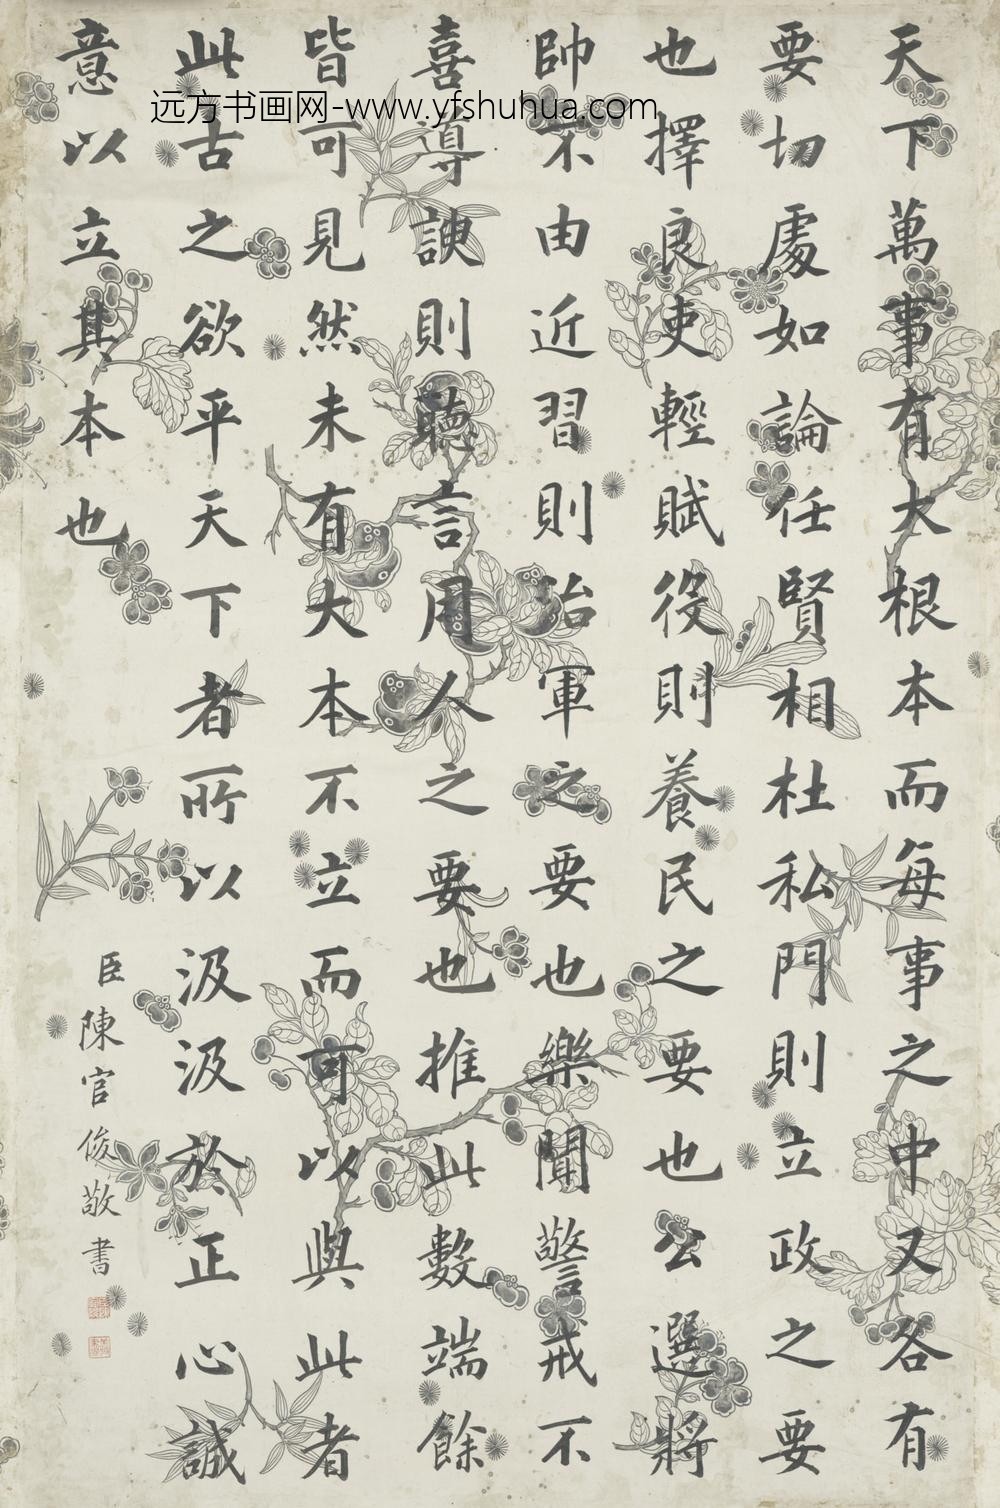 天下萬事有大根本而每事之中又各有
要切處如論任賢相杜私門則立政之要
也擇良吏輕賦役則養民之要也公選將
帥不由近習則治軍之要也樂聞警戒不
喜導諛則聽言用人之要也推此數端餘
皆可見然未有大本不立而可以與此者
此古之欲平天下者所以汲汲於正心誠
意以立其本也
臣陳官俊敬書
远方书画网-www.yfshuhua.com